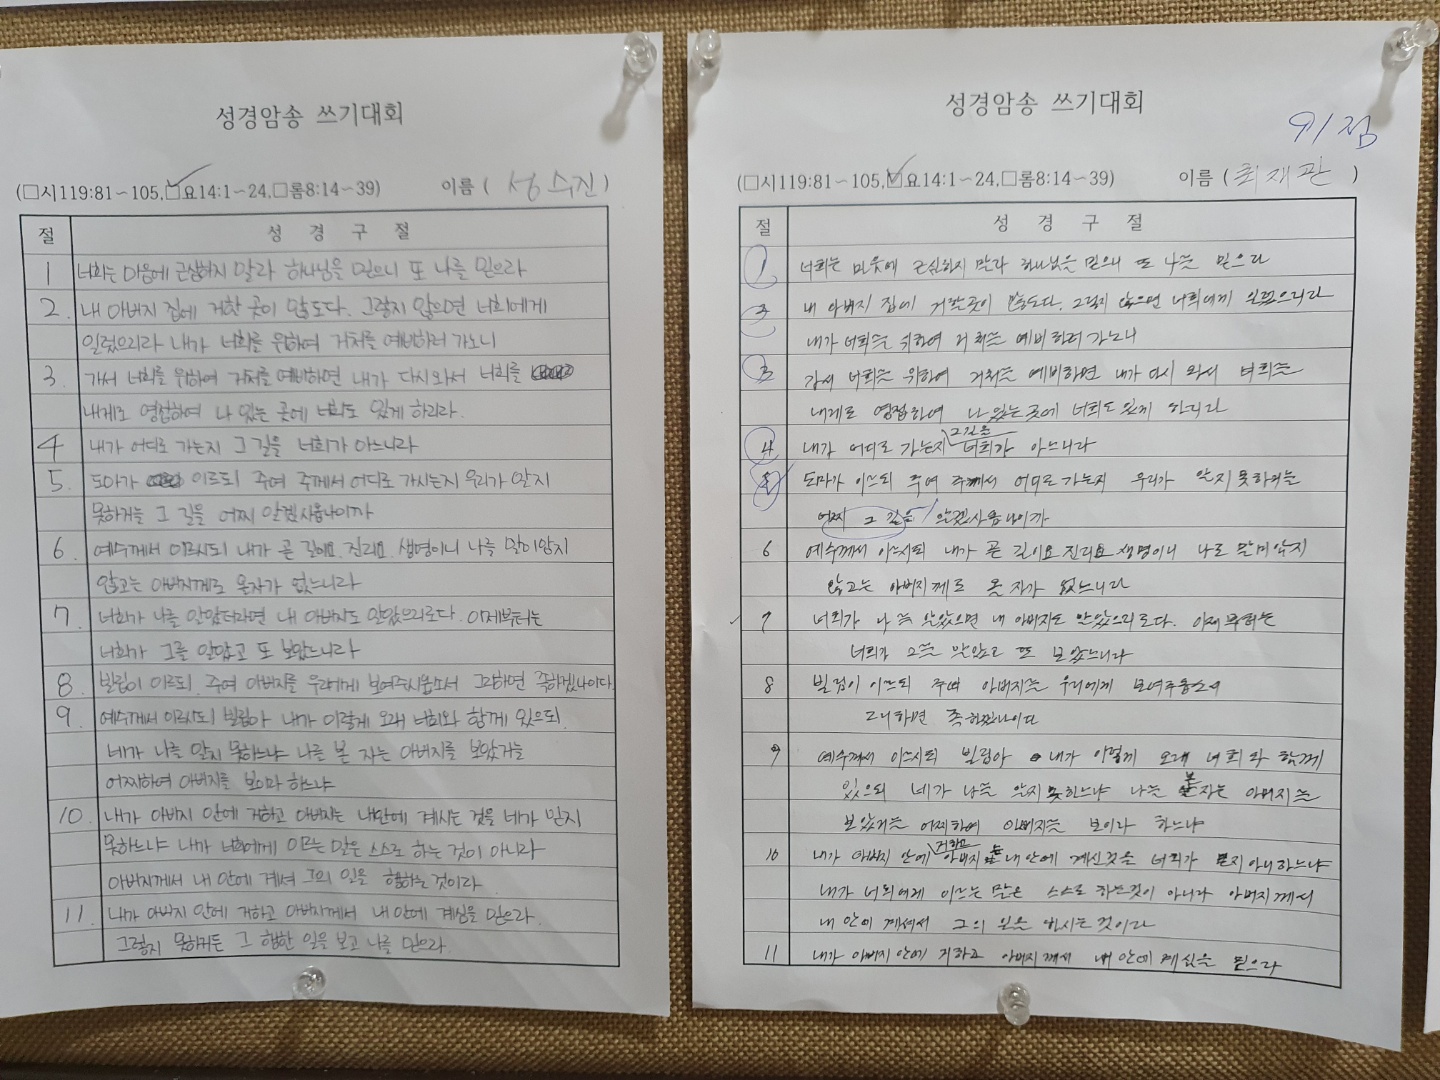 성경암송 쓰기대회
(□시119:81~105,□요14:1~24,□롬8:14~39) 이름 ( 성수진 )
절 성 경 구 절
1 너희는 마음에 근심하지 말라 하나님을 믿으니 또 나를 믿으라
2. 내 아버지 집에 거할 곳이 많도다. 그렇지 않으면 너희에게
일렀으리라 내가 너희를 위하여 거처를 예비하러 가노니
3. 가서 너희를 위하여 거처를 예비하면 내가 다시 와서 너희를
내게로 영접하여 나 있는 곳에 너희도 있게 하리라.
4 내가 어디로 가는지 그 길을 너희가 아느니라
5. 도마가 이르되 주여 주께서 어디로 가시는지 우리가 알지
못하거늘 그 길을 어찌 알겠사옵나이까
6. 예수께서 이르시되 내가 곧 길이요 진리요 생명이니 나를 말미암지
않고는 아버지께로 올자가 없느니라
7. 너희가 나를 알았더라면 내 아버지도 알았으리로다. 이제부터는
너희가 그를 알았고 또 보았느니라
8. 빌립이 이르되 주여 아버지를 우리에게 보여주시옵소서 그리하면 족하겠나이다.
9. 예수께서 이르시되 빌립아 내가 이렇게 오래 너희와 함께 있으되
네가 나를 알지 못하느냐 나를 본 자는 아버지를 보았거늘
어찌하여 아버지를 보이라 하느냐
10. 내가 아버지 안에 거하고 아버지는 내안에 계시는 것을 네가 믿지
못하느냐 내가 너희에게 이르는 말은 스스로 하는 것이 아니라
아버지께서 내 안에 계셔 그의 일을 행하는 것이라
11. 내가 아버지 안에 거하고 아버지께서 내 안에 계심을 믿으라.
그렇지 못하거든 그 행한 일을 보고 나를 믿으라.
성경암송 쓰기대회
91점
(□시119:81~105,□요14:1~24,□롬8:14~39) 이름 ( 최재관 )
절 성 경 구 절
1 너희는 마음에 근심하지 말라 하나님을 믿으니 또 나를 믿으라
2 내 아버지 집에 거할곳이 많도다. 그렇지 않으면 너희에게 일렀으리라
내가 너희를 위하여 거처를 예비하러 가노니
3 가서 너희를 위하여 거처를 예비하면 내가 다시 와서 너희를
내게로 영접하여 나 있는 곳에 너희도 있게 하리라
4 내가 어디로 가는지 그 길을 너희가 아느니라
5 도마가 이르되 주여 주께서 어디로 가는지 우리가 알지 못하거늘
어찌 그 길을 알겠사옵나이까
6 예수께서 이르시되 내가 곧 길이요 진리요 생명이니 나로 말미암지
않고는 아버지께로 올 자가 없느니라
7 너희가 나를 알았으면 내 아버지도 알았으리로다. 이제
너희가 그를 알았고 또 보았느니라
8 빌립이 이르되 주여 아버지를 우리에게 보여주옵소서
그리하면 족하겠나이다
9 예수께서 이르시되 빌립아 내가 이렇게 오래 너희와 함께
있으되 네가 나를 알지 못하느냐 나를 본 자는 아버지를
보았거늘 어찌하여 아버지를 보이라 하느냐
10 내가 아버지 안에 거하고 아버지는 내 안에 계신것을 너희가 믿지 아니하느냐
내가 너희에게 이르는 말은 스스로 하는것이 아니라 아버지께서
내 안에 계셔서 그의 일을 하시는 것이라
11 내가 아버지 안에 거하고 아버지께서 내 안에 계심을 믿으라